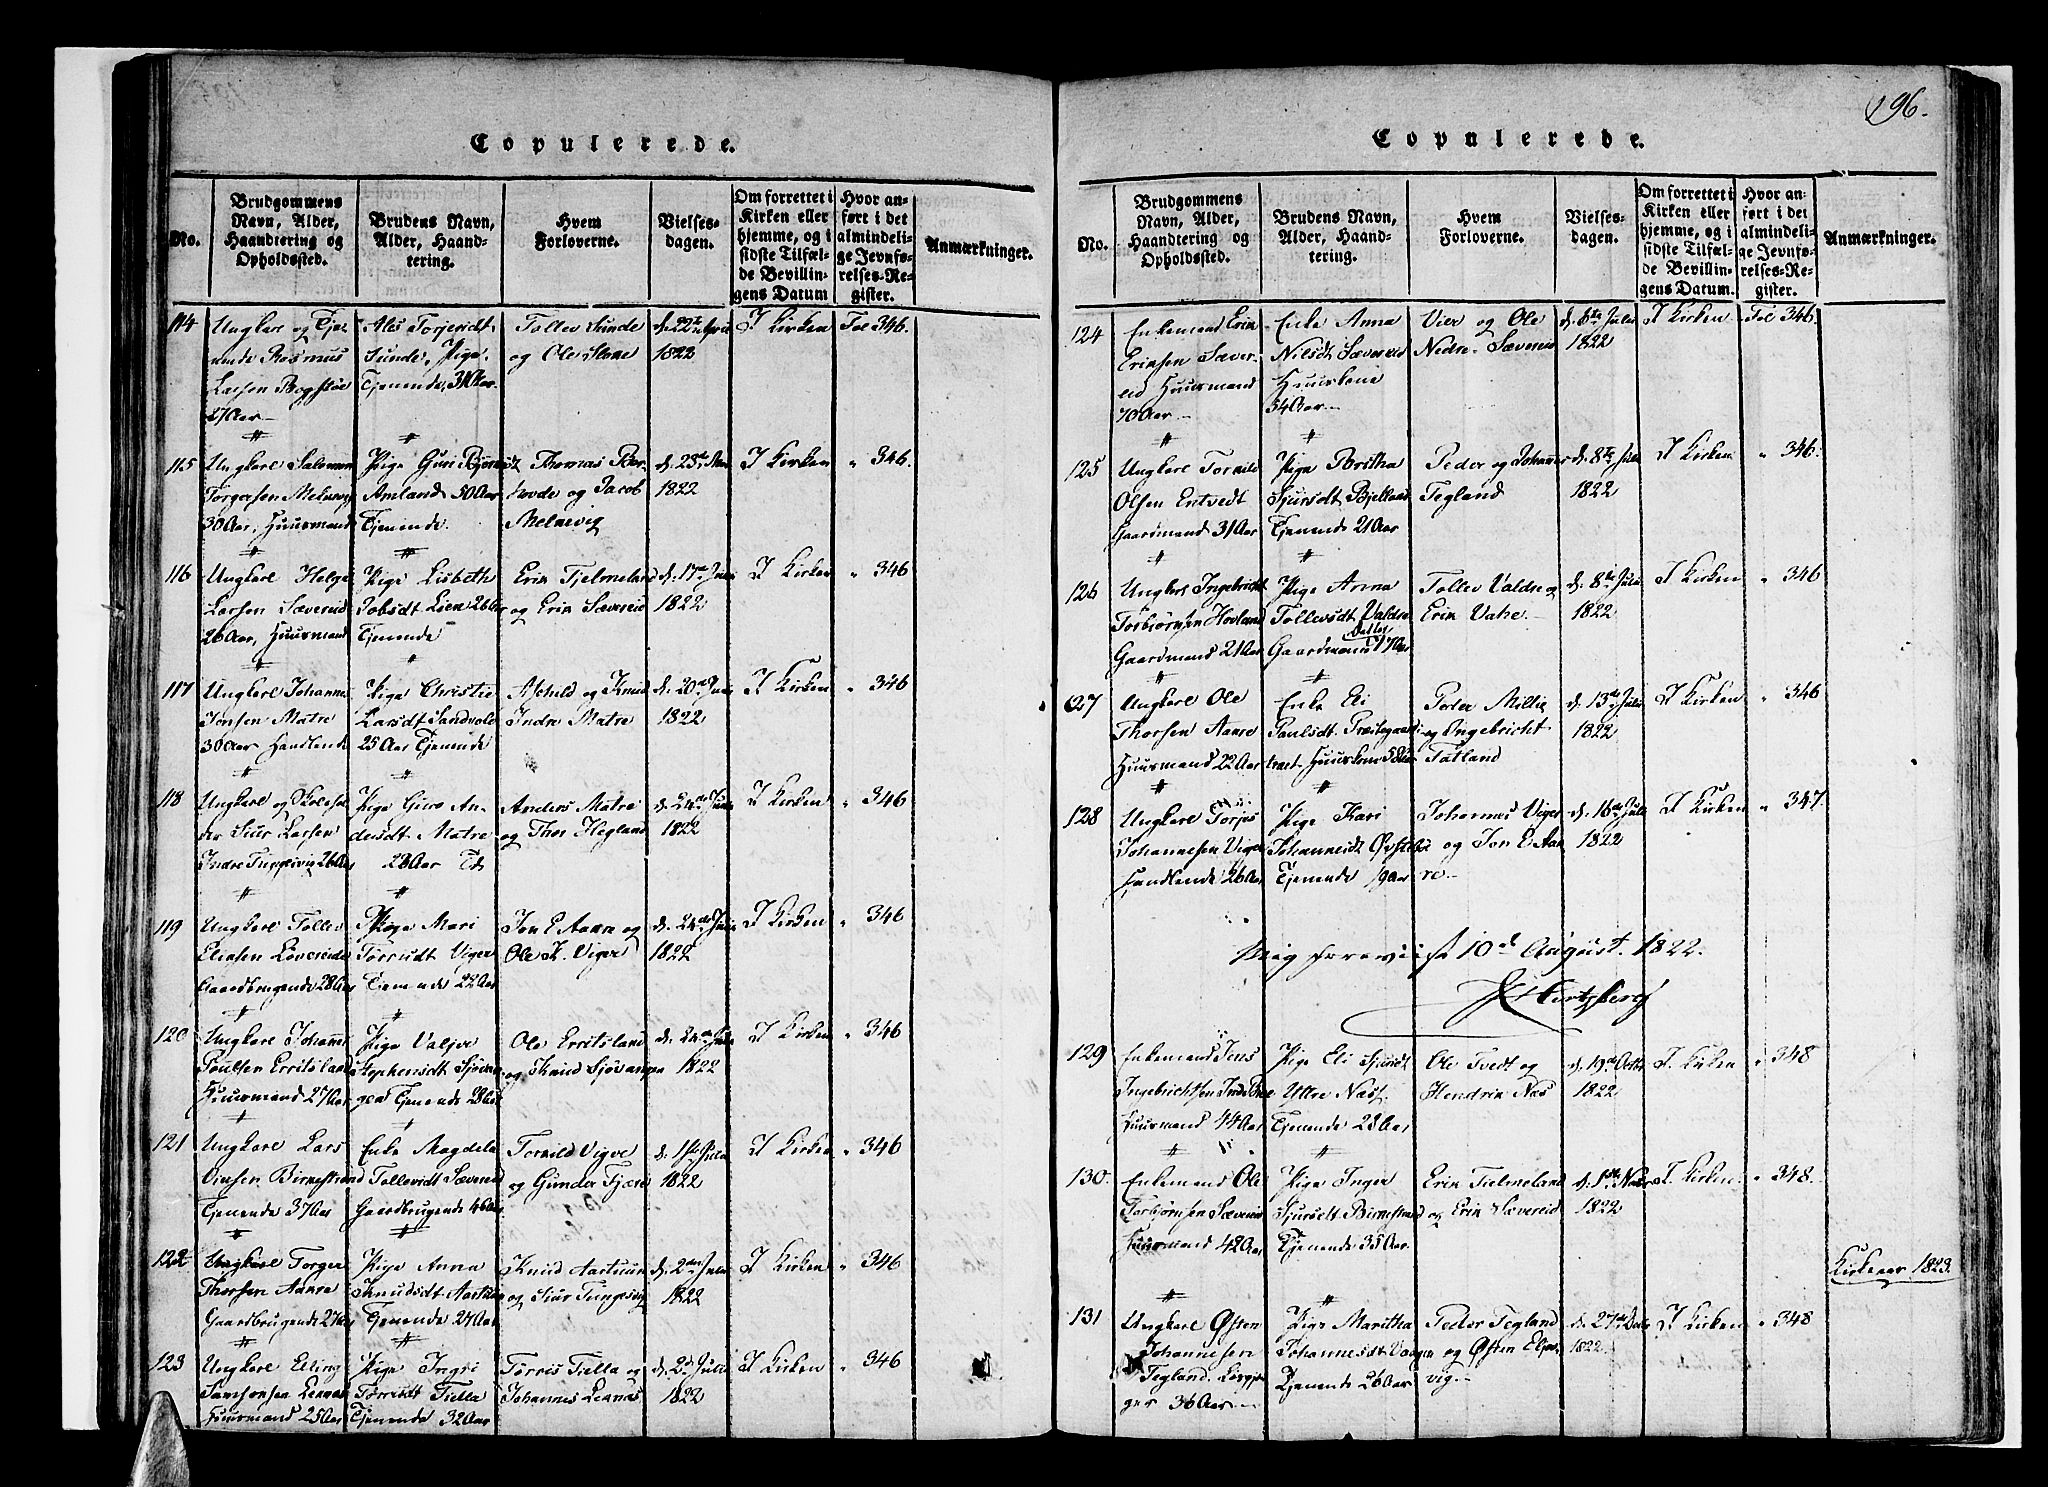 196.
Copulerede.
No.
Brudgommens
Navn, Alder,
Haandtering og
Opholdssted.
Brudens Navn,
Alder, Haand-
tering.
Hvem
Forloverne.
Vielses-
dagen.
Om forrettet i
Kirken eller
hjemme, og i
sidste Tilfæl-
de Bevillin-
gens Datum
Hvor an-
ført i det
almindeli-
ge Jevnfø-
relses-Re-
gister.
Anmærkninger.
114
Ungkarl og Tje-
nende Rasmus
Larsen
27 Aar
Sunde, Pige,
Tjenende, 31 Aar.
Tollev Sunde
og Ole
d. 22de April
1822
I Kirken
Fol 346.
115
Ungkarl Salomon
Torgersen
30 Aar, Huusmand
Pige Guri
Amland 50 Aar
Tjenende.
Thomas
og Jacob
Melsvig
1822
I Kirken
" 346.
116
Ungkarl Helge
Larsen Sævereid
26 Aar, Huusmand
Pige Lisbeth
Lien 26 Aar
Tjenende
Erik Fjelmeland
og Erik Sævereid
d. 17de
1822
I Kirken
" 346
117
Ungkarl Johannes
Jonsen Matre
30 Aar Handlende
Pige Christie
Larsdt Sandvold
25 Aar Tjenende
og Knud
Indre Matre
d. 20de
1822
I Kirken
" 346
118
Ungkarl og Skolehol-
der Siur Larsen
Indre Tungesvig 26 Aar
Pige Giøro An-
dersdt Matre
28 Aar Tj.
Anders Matre
og Thor Hegland
d. 24de
1822
I Kirken
" 346
119
Ungkarl Tollev
Gaardbrugende 28 Aar
Pige Mari
Viger
Tjenende 22 Aar
Jon E. Aanre og
Ole T. Viger
d. 24de
1822
I Kirken
" 346
120
Ungkarl Johannes
Poulsen Erritsland
Huusmand 27 Aar
Pige Valjer
Stephensdt Sjøvan-
gen Tjenende 28 Aar
Ole Erritsland
og Knud Sjøvangen
d. 24de
1822
I Kirken
" 346
121
Ungkarl Lars
Birnestrand
Tjenende 37 Aar
Enke Magdela
Tollevsdt Sævereid
Gaardbrugende 46 Aar
Torkild Vigve
og Gunder Fjære
d. 1ste Julii
1822
I Kirken
" 346
122
Ungkarl Torger
Thorsen Aanre
Gaardbrugende 27 Aar
Pige Anna
Knudsdt
Tjenende 24 Aar
Knud
og Siur Tungesvig
d. 2den Julii
1822
I Kirken
" 346
123
Ungkarl Elling
Samsonsen
Huusmand 25 Aar
Pige Ingri
Fiella
Tjenende 32 Aar
Tørris Fiella og
Johannes
d. 2d Julii
1822
I Kirken
" 346
Copulerede.
No.
Brudgommens
Navn, Alder,
Haandtering og
Opholdssted.
Brudens Navn,
Alder, Haand-
tering.
Hvem
Forloverne.
Vielses-
dagen.
Om forrettet i
Kirken eller
hjemme, og i
sidste Tilfæl-
de Bevillin-
gens Datum.
Hvor an-
ført i det
almindeli-
ge Jevnfø-
relses-Re-
gister.
Anmærkninger.
124
Enkemand Erik
Eriksen Sæver-
eid Huusmand
70 Aar
Enke Anna
Nilsdt Sævereid
Huuskone
54 Aar
og Ole
Nedre Sævereid
d. 6te Julii
1822
I Kirken
Fol 346.
125
Ungkarl Torkild
Olsen Entvedt
Gaardmand 31 Aar
Pige Britha
Sjursdt Bjelland
Tjenende 21 Aar
Peder og Johannes
Tegland
d. 8te Julii
1822
I Kirken
" 346.
126
Ungkarl Ingebricht
Torbjørnsen Hovland
Gaardmand 21 Aar
Pige Anna
Tollevsdt Valdre
Gaardmands Datter 17 Aar
Tollev Valdre og
Erik Vatne.
d. 8de Julii
1822
I Kirken
" 346
127
Ungkarl Ole
Thorsen Aanre
Huusmand 22 Aar
Enke Eli
Paulsdt Præstegaards-
træet Huuskone 50 Aar
Peder Millie
og Ingebricht
Tatland
d. 13de Julii
1822
I Kirken
" 346
128
Ungkarl Torjus
Johannesen Viger
Handlende 26 Aar
Pige Kari
Johannesdt Øvstebø
Tjenende 19 Aar
Johannes Viger
og Jon E. Aan-
re.
d. 16de Julii
1822
I Kirken
" 347.
10d August 1822.
Hertzberg
129
Enkemand Jens
Ingebrichtsen
Huusmand 44 Aar
Pige Eli Sjursdt
Yttre Næss.
Tjenende 28 Aar
Ole Tvedt og
Hendrik Næs
d. 19de Octbr
1822
I Kirken
" 348
130.
Enkemand Ole
Torbjørnsen Sævereid
Huusmand 42 Aar
Pige Inger
Sjursdt Birnestrand
Tjenende 35 Aar.
Erik Fielmeland
og Erik Sævereid
d. 1ste Novbr
1822
I Kirken
" 348.
Kirkeaar 1823.
131
Ungkarl Østen
Johannesen
Tegland.
36 Aar
Pige Maritha
Johannesdt Vaagen
Tjenende 26 Aar
Peder Tegland
og Østen
vig.
d. 27de Decbr
1822.
I Kirken
" 348